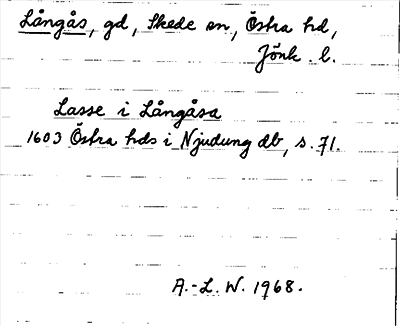 Långås, gd, Skede sn, Östra hd,
Jönk. l.
Lasse i Långåsa
1603 Östra hds i Njudung db, s. 71.
A.-L. W. 1968.